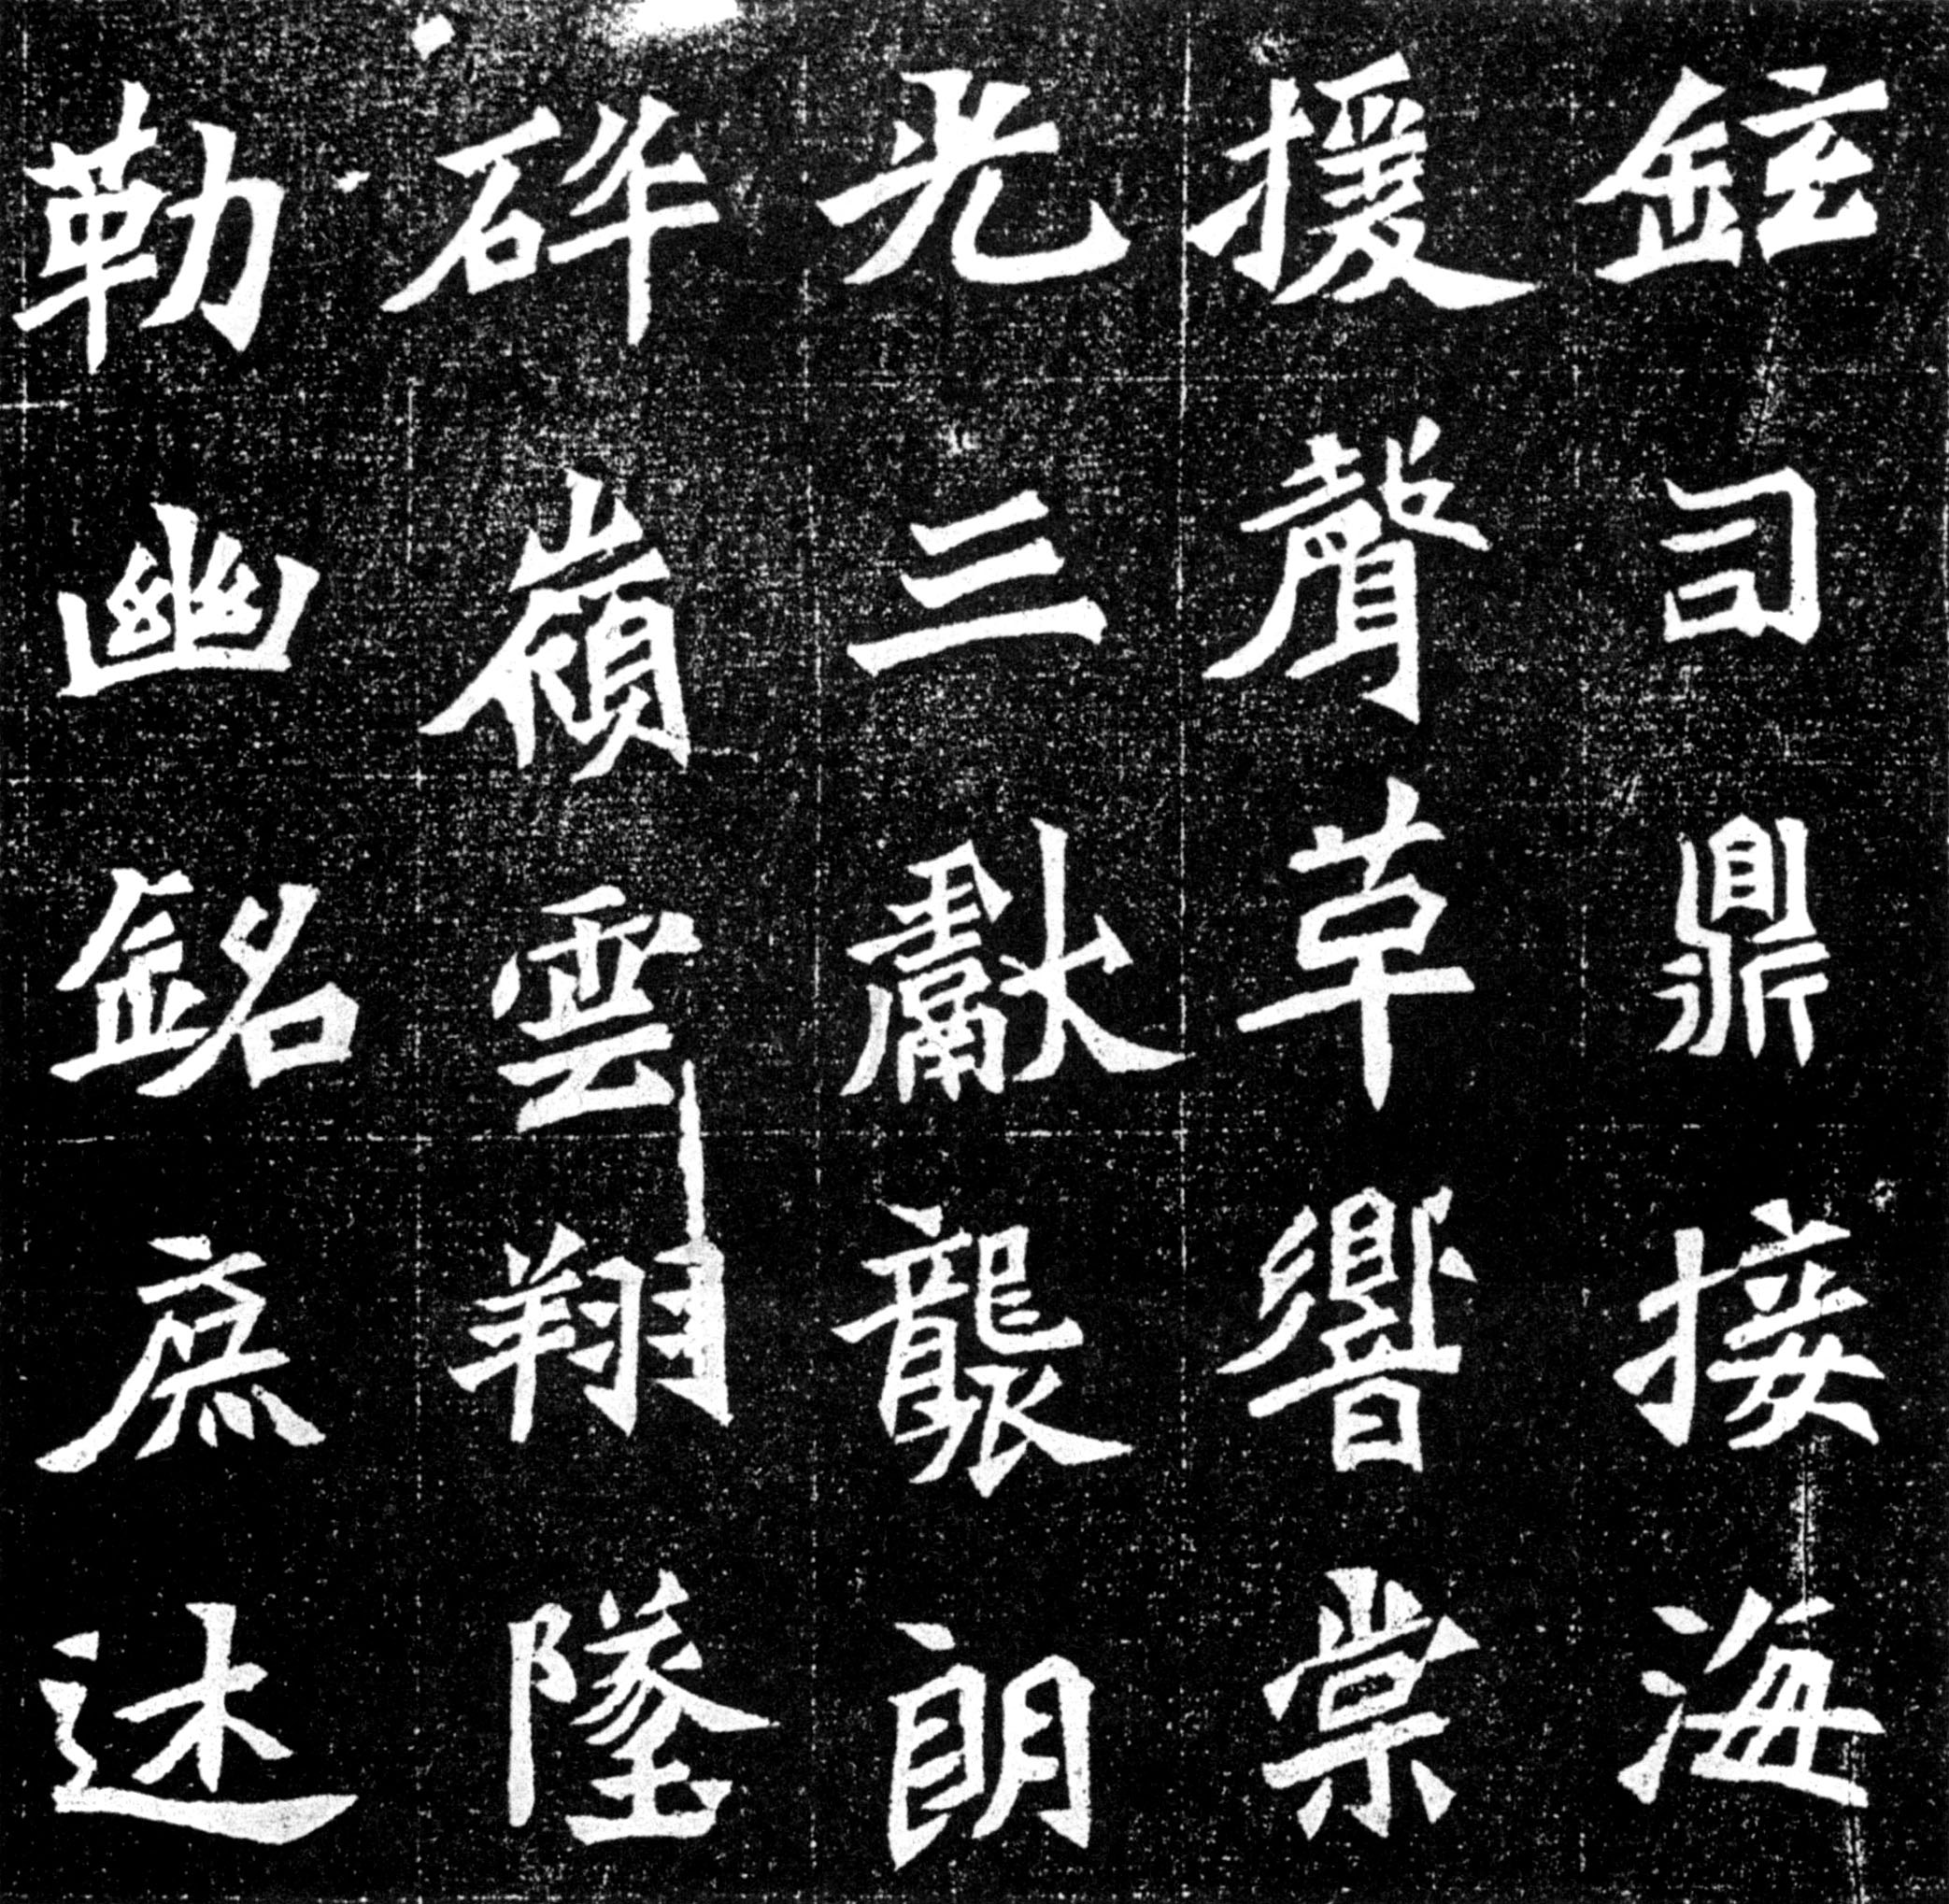 鉉司鼎接海
援聲草響棠
光三獻襲朗
碎嶺雲翔墜
勒幽銘庶述